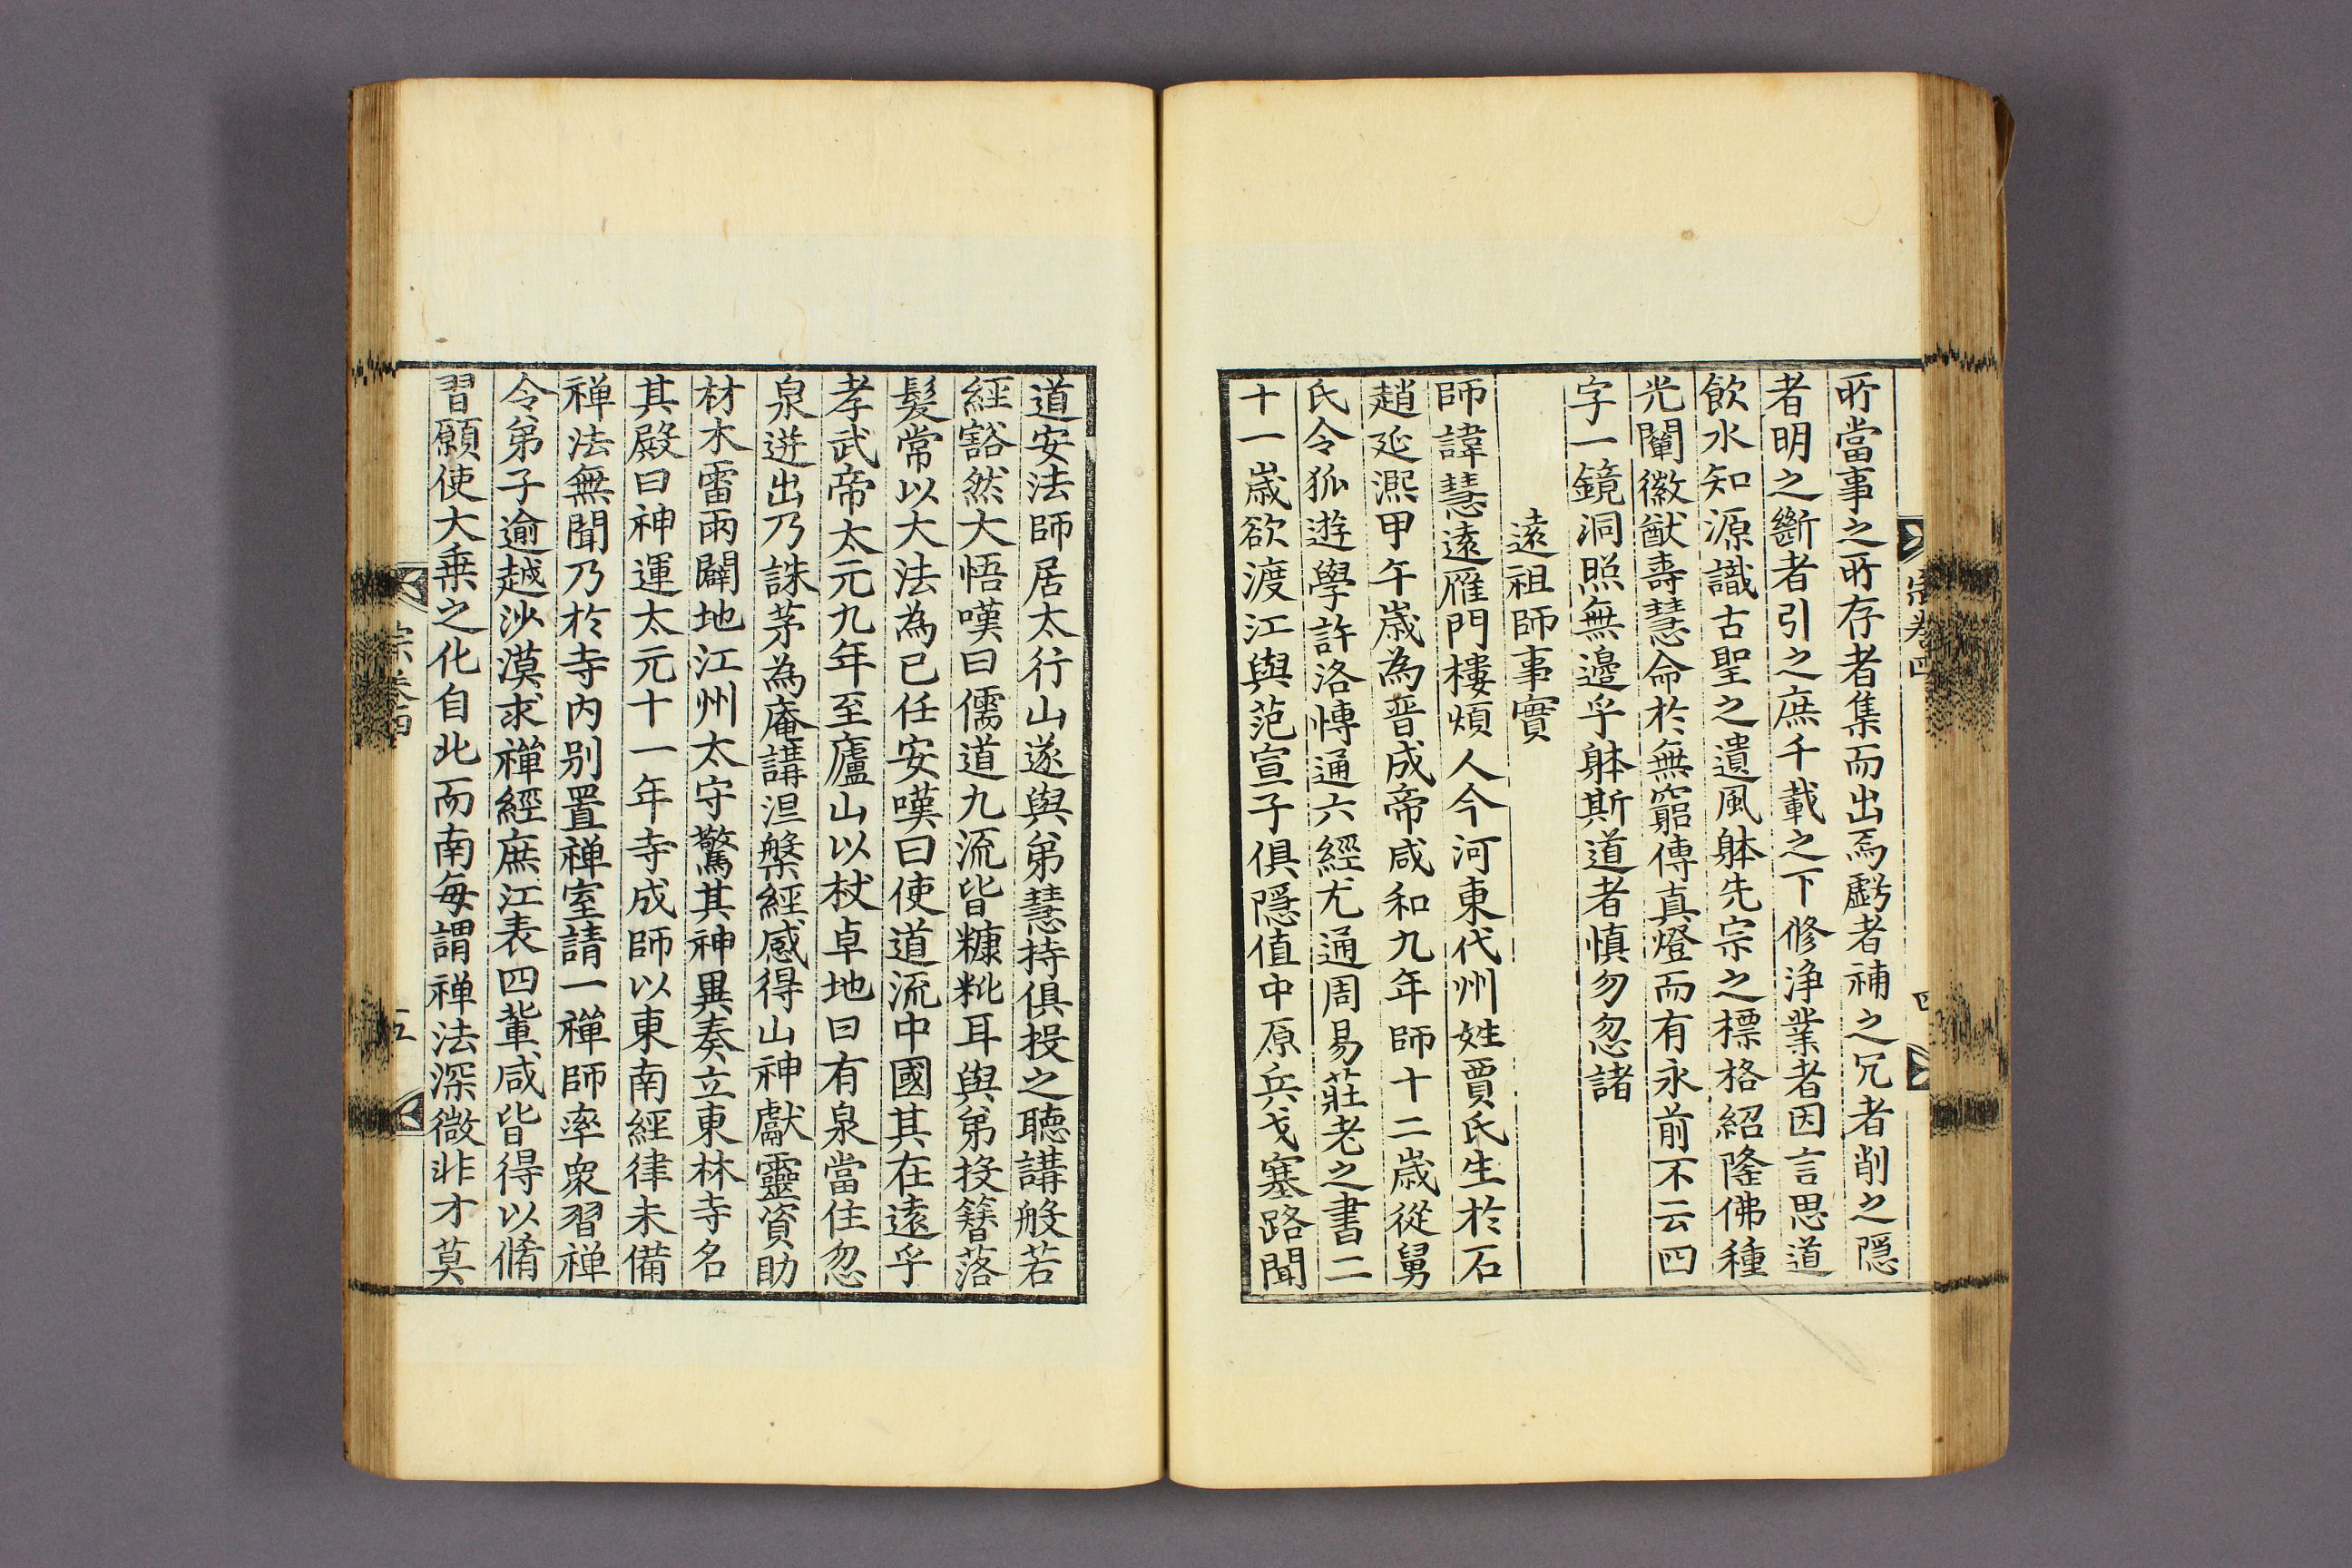 宗卷四
四
所當事之所存者集而出焉虧者補之冗者削之隱
者明之斷者引之庶千載之下修淨業者因言思道
飲水知源識古聖之遺風躰先宗之標格紹隆佛種
光闡徽猷壽慧命於無窮傳真燈而有永前不云四
字一鏡洞照無邊乎躰斯道者慎勿忽諸
遠祖師事實
師諱慧遠雁門樓煩人今河東代州姓賈氏生於石
趙延凞甲午歲為晉成帝咸和九年師十二歲從舅
氏令狐遊學許洛愽通六經尤通周易莊老之書二
十一歲欲渡江與范宣子俱隱值中原兵戈塞路聞
道安法師居太行山遂與弟慧持俱投之聽講般若
經豁然大悟嘆曰儒道九流皆糠粃耳與弟投簪落
髮常以大法為已任安嘆曰使道流中國其在遠乎
孝武帝太元九年至廬山以杖卓地曰有泉當住忽
泉迸出乃誅茅為庵講涅槃經感得山神獻靈資助
材木雷雨闢地江州太守驚其神異奏立東林寺名
其殿曰神運太元十一年寺成師以東南經律未備
禅法無聞乃於寺內别置禅室請一禪師率衆習禅
令弟子逾越沙漠求禪經庶江表四軰咸皆得以脩
習願使大乗之化自北而南每謂禅法深微非才莫
宗卷四
五